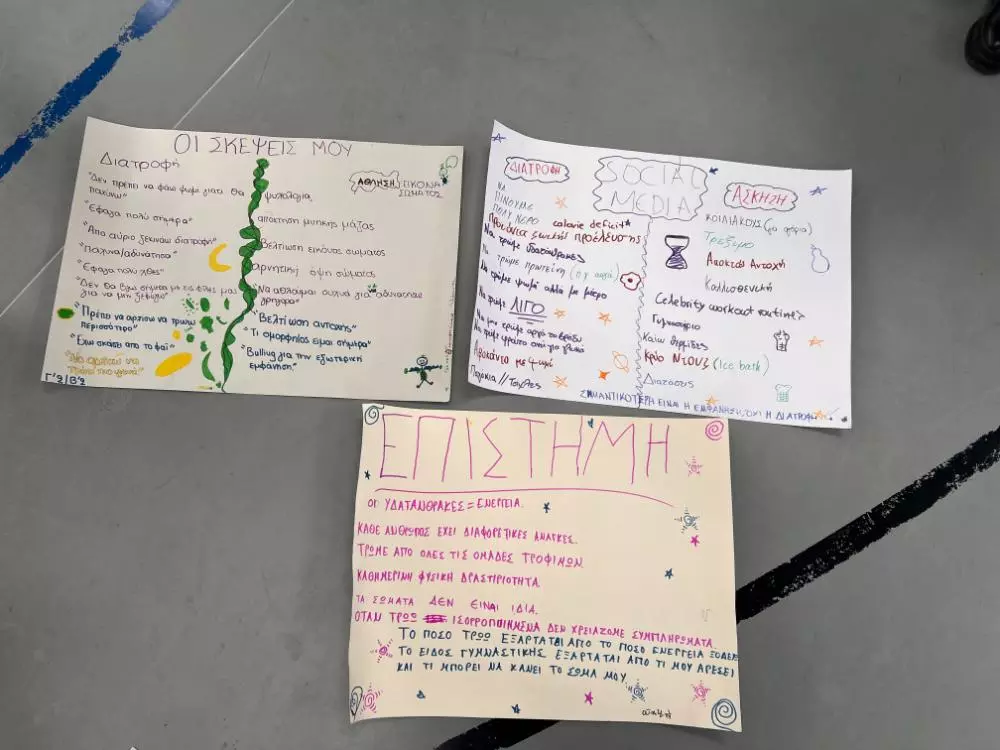 ΟΙ ΣΚΕΨΕΙΣ ΜΟΥ
Διατροφή
"Δεν πρέπει να φάω ψωμί γιατί θα
παχύνω"
"Έφαγα πολύ σήμερα"
"Από αύριο ξεκινάω διατροφή"
"Παχαίνω/αδυνατίσω"
"Έφαγα πολύ χθες"
"Δεν θα βγω σήμερα με τις φίλες μου
για να μην ξεφύγω"
"Πρέπει να αρχίσω να τρώω
περισσότερο"
"Έχω σκάσει απο το φαΐ"
Γ'2/Β'2
ΑΘΛΗΣΗ/ΕΙΚΟΝΑ
ΣΩΜΑΤΟΣ
ψυχολογία
απόκτηση μυϊκής μάζας
Βελτίωση εικόνας σώματος
αρνητική όψη σώματος
"Να αθλούμαι συχνά για να αδυνατίσω
γρήγορα"
"Βελτίωση αντοχής"
"Τι ομορφιές είμαι σήμερα"
"Bulling για την εξωτερική
εμφάνιση"
SOCIAL
MEDIA
ΔΙΑΤΡΟΦΗ
ΝΑ
ΠΙΝΟΥΜΕ
ΠΟΛΥ ΝΕΡΟ
calorie deficit*
Προϊόντα ζωικής προέλευσης
Να τρώμε υδατάνθρακες
Να τρώμε πρωτεΐνη (π.χ αυγά)
Να τρώμε ψωμί αλλά με μέτρο
Να τρώμε ΛΙΓΟ
Να μην τρώμε αργά το βράδυ
Να τρώμε φρούτα αντί για γλυκά
Αβοκάντο με ψωμί
ΑΣΚΗΣΗ
ΚΟΙΛΙΑΚΟΥΣ
Τρέξιμο
Αποκτάω Αντοχή
Καλλισθενική
Celebrity workout routines
Γυμναστήριο
Καίω θερμίδες
Κρύο Ντουζ (Ice bath)
Διατάσεις
ΣΗΜΑΝΤΙΚΟΤΕΡΗ ΕΙΝΑΙ Η ΕΜΦΑΝΗΣΗ, ΟΧΙ Η ΔΙΑΤΡΟΦΗ
ΕΠΙΣΤΗΜΗ
ΟΙ ΥΔΑΤΑΝΘΡΑΚΕΣ = ΕΝΕΡΓΕΙΑ.
ΚΑΘΕ ΑΝΘΡΩΠΟΣ ΕΧΕΙ ΔΙΑΦΟΡΕΤΙΚΕΣ ΑΝΑΓΚΕΣ.
ΤΡΩΜΕ ΑΠΟ ΟΛΕΣ ΤΙΣ ΟΜΑΔΕΣ ΤΡΟΦΙΜΩΝ.
ΚΑΘΗΜΕΡΙΝΗ ΦΥΣΙΚΗ ΔΡΑΣΤΙΡΙΟΤΗΤΑ.
ΤΑ ΣΩΜΑΤΑ ΔΕΝ ΕΙΝΑΙ ΙΔΙΑ.
ΟΤΑΝ ΤΡΩΩ ΙΣΟΡΡΟΠΗΜΕΝΑ ΔΕΝ ΧΡΕΙΑΖΟΜΕ ΣΥΜΠΛΗΡΩΜΑΤΑ.
ΤΟ ΠΟΣΟ ΤΡΩΩ ΕΞΑΡΤΑΤΑΙ ΑΠΟ ΤΟ ΠΟΣΟ ΕΝΕΡΓΕΙΑ ΞΟΔΕΥΩ
ΤΟ ΕΙΔΟΣ ΓΥΜΝΑΣΤΙΚΗΣ ΕΞΑΡΤΑΤΑΙ ΑΠΟ ΤΙ ΜΟΥ ΑΡΕΣΕΙ
ΚΑΙ ΤΙ ΜΠΟΡΕΙ ΝΑ ΚΑΝΕΙ ΤΟ ΣΩΜΑ ΜΟΥ.